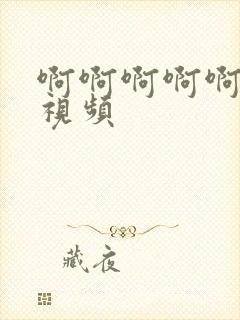 啊啊啊啊啊
視頻
藏夜